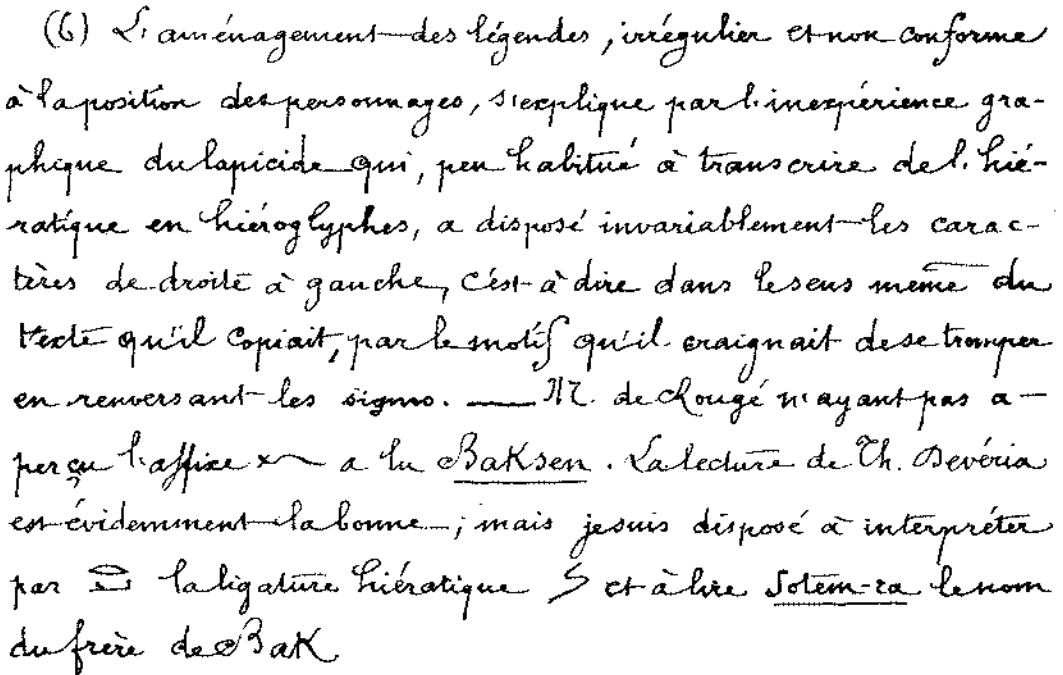 (6) L'aménagement des légendes, irrégulier et non conforme
à la position des personnages, s'explique par l'inexpérience gra-
phique du lapicide qui, peu habitué à transcrire de l'hié-
ratique en hiéroglyphes, a disposé invariablement les carac-
tères de droite à gauche, c'est-à dire dans le sens même du
texte qu'il copiait, par le motif qu'il craignait de se tromper
en renversant les signes. — M. de Rougé n'ayant pas a-
perçu l'affixe a lu Baksen. La lecture de Th. Devéria
est évidemment la bonne ; mais je suis disposé à interpréter
par la ligature hiératique et à lire Sotem-ra le nom
du frère de Bak